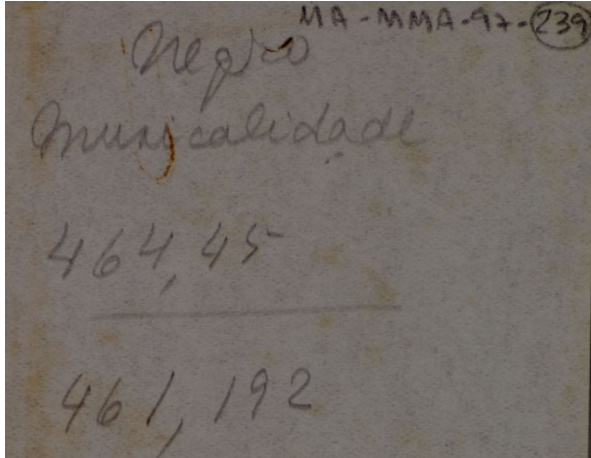 MA-MMA-97-239
Negro
Musicalidade
464,45
461,192